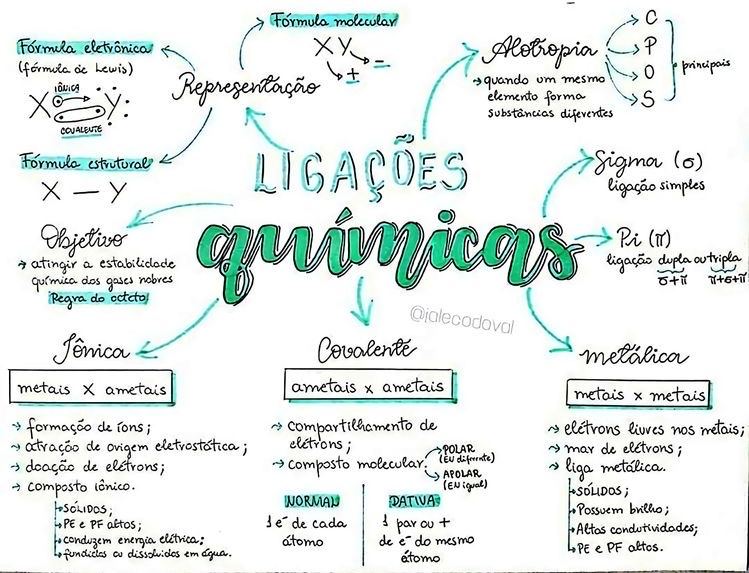 LIGAÇÕES
químicas
@ialecodoval
Representação
Fórmula eletrônica
(fórmula de Lewis)
IÔNICA
X Y
COVALENTE
Fórmula estrutural
X — Y
Fórmula molecular
XY
+ -
Alotropia
→ quando um mesmo
elemento forma
substâncias diferentes
C
P
O
S
principais
Sigma (σ)
ligação simples
Pi (π)
ligação dupla ou tripla
σ+π π+σ+π
Objetivo
→ atingir a estabilidade
química dos gases nobres
Regra do octeto
Iônica
metais X ametais
→ formação de íons;
→ atração de origem eletrostática;
→ doação de elétrons;
→ composto iônico.
SÓLIDOS;
PE e PF altos;
conduzem energia elétrica;
fundidos ou dissolvidos em água.
Covalente
ametais x ametais
→ compartilhamento de
elétrons;
→ composto molecular.
POLAR
(EN diferente)
APOLAR
(EN igual)
NORMAL
1 e⁻ de cada
átomo
DATIVA
1 par ou +
de e⁻ do mesmo
átomo
metálica
metais x metais
→ elétrons livres nos metais;
→ mar de elétrons;
→ liga metálica.
SÓLIDOS;
Possuem brilho;
Altas condutividades;
PE e PF altos.